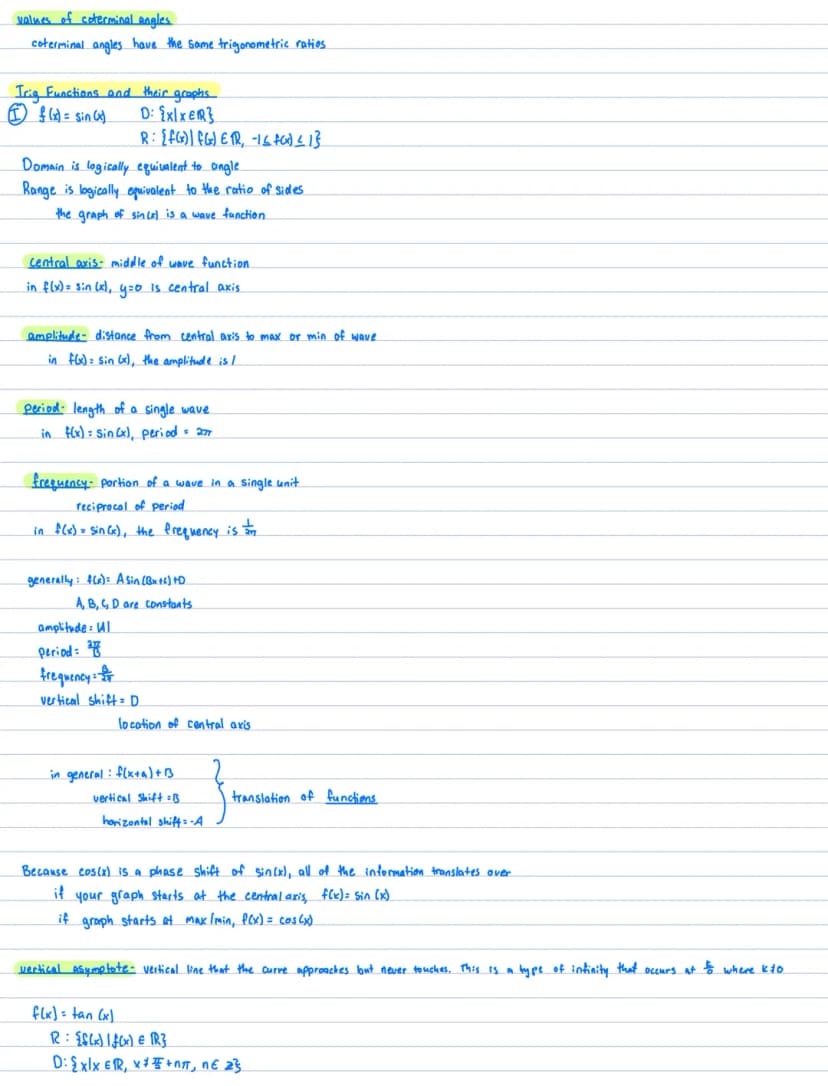 values of coterminal angles
coterminal angles have the same trigonometric ratios
Trig Functions and their graphs
I f(x) = sin(x) D: {x|x∈ℝ}
R: {f(x)| f(x) ∈ ℝ, -1 ≤ f(x) ≤ 1}
Domain is logically equivalent to angle
Range is logically equivalent to the ratio of sides
the graph of sin(x) is a wave function
central axis- middle of wave function
in f(x) = sin(x), y=0 is central axis
amplitude- distance from central axis to max or min of wave
in f(x) = sin(x), the amplitude is 1
period- length of a single wave
in f(x) = sin(x), period = 2π
frequency- portion of a wave in a single unit
reciprocal of period
in f(x) = sin(x), the frequency is 1/2π
generally: f(x) = A sin(Bx+C)+D
A, B, C, D are constants
amplitude = |A|
period = 2π/B
frequency = B/2π
vertical shift = D
location of central axis
in general: f(x+A)+B
vertical shift = B
translation of functions
horizontal shift = -A
Because cos(x) is a phase shift of sin(x), all of the information translates over
if your graph starts at the central axis, f(x) = sin(x)
if graph starts at max/min, f(x) = cos(x)
vertical asymptote- vertical line that the curve approaches but never touches. This is a type of infinity that occurs at k/0 where k≠0
f(x) = tan(x)
R: {f(x) | f(x) ∈ ℝ}
D: {x|x ∈ ℝ, x ≠ π/2 + nπ, n ∈ ℤ}